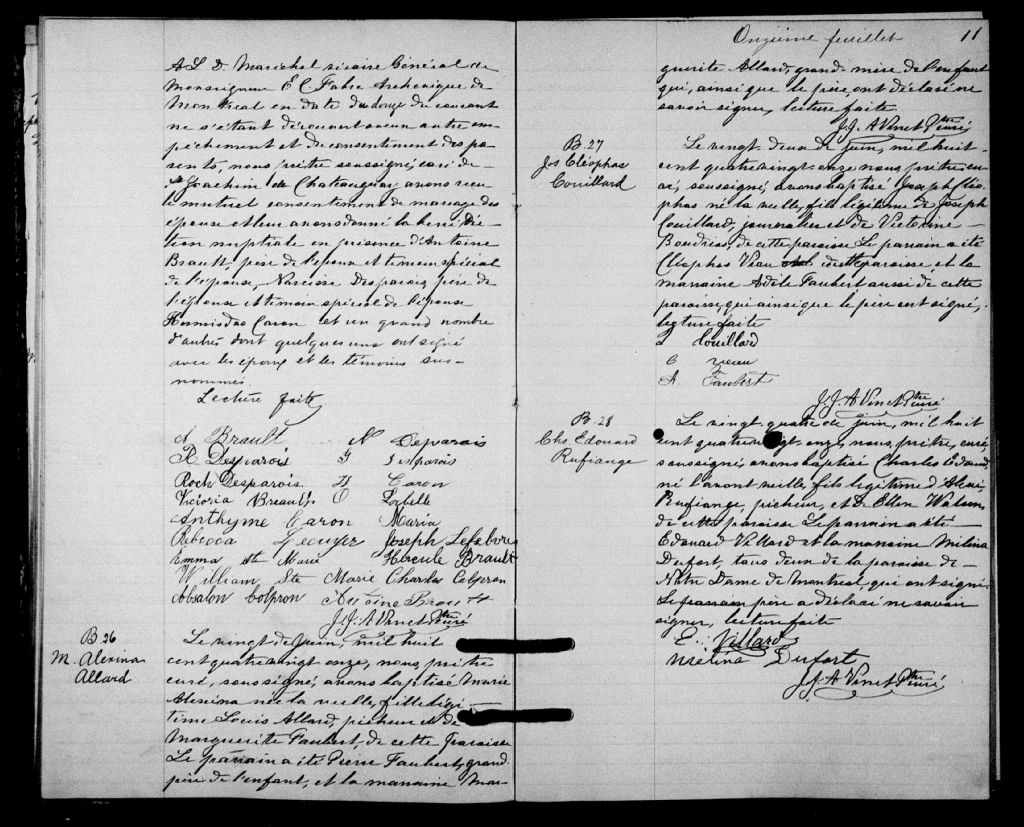 A L D Maréchal vicaire Général de
Monseigneur E C Fabre Archevêque de
Montréal en date du douze du courant
ne s'étant découvert aucun autre em-
pêchement et du consentement des pa-
rents, nous prêtre soussigné, curé de
St Joachim de Chateauguay avons reçu
le mutuel consentement de mariage des
époux et leur avons donné la bénédic-
tion nuptiale en présence d'Antoine
Brault, père de l'époux et témoin spécial
de l'épouse, Narcisse Desparois, père de
l'épouse et témoin spécial de l'épouse
Hermisdas Caron et un grand nombre
d'autres dont quelques uns ont signé
avec les époux et les témoins sus-
nommés
Lecture faite
A Brault N Deparois
R. Desparois G Desparois
Roch Desparois H Caron
Victoria Breault O Labelle
Anthyme Caron Maria
Rebecca Joseph Lefebvre
Emma Ste Marie Hercule Brault
William Ste Marie Charles Colpron
Absalon Colpron Antoine Brault
J.J. A Vinet Ptre Curé
B 26
M. Alexina
Allard
Le vingt de juin, mil huit
cent quatre vingt onze, nous, prêtre
curé, soussigné, avons baptisé Marie
Alexina née la veille, fille légi-
time Louis Allard, pêcheur et de
Marguerite Faubert, de cette paroisse
Le parrain a été Pierre Faubert, grand
père de l'enfant, et la marraine Mar-
Onzième feuillet 11
guerite Allard, grande mère de l'enfant
qui, ainsi que le père, ont déclaré ne
savoir signer, lecture faite
J.J. A Vinet Ptre Curé
B 27
Jos Cléophas
Couillard
Le vingt-deux de juin, mil huit
cent quatre vingt onze nous, prêtre cu-
ré, soussigné, avons baptisé Joseph Cléo-
phas né la veille, fils légitime de Joseph
Couillard, journalier et de Victorine
Boudrias, de cette paroisse Le parrain a été
Cléophas Viau de cette paroisse et la
marraine Adèle Faubert aussi de cette
paroisse, qui ainsi que le père ont signé,
lecture faite
J Couillard
C Viau
A. Faubert
J.J. A Vinet Ptre Curé
B 28
Chs. Edouard
Rufiange
Le vingt quatre de juin, mil huit
cent quatre vingt-onze, nous, prêtre, curé,
soussigné, avons baptisé Charles Edouard,
né l'avant veille, fils légitime d'
Rufiange, pêcheur, et de Ellen Watson,
de cette paroisse Le parrain a été
Edouard Villard et la marraine Mélina
Dufort, tous deux de la paroisse de
Notre Dame de Montréal, qui ont signé
Le père a déclaré ne savoir
signer, lecture faite
E. Villard
Mélina Dufort
J.J. A Vinet Ptre Curé